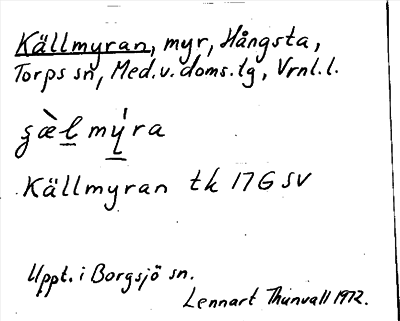 Källmyran, myr, Hångsta,
Torps sn, Med.v.doms.lg, Vrnl.l.
ʂæ̀l mýra
Källmyran tk 17G SV
Uppt. i Borgsjö sn.
Lennart Thunvall 1972.